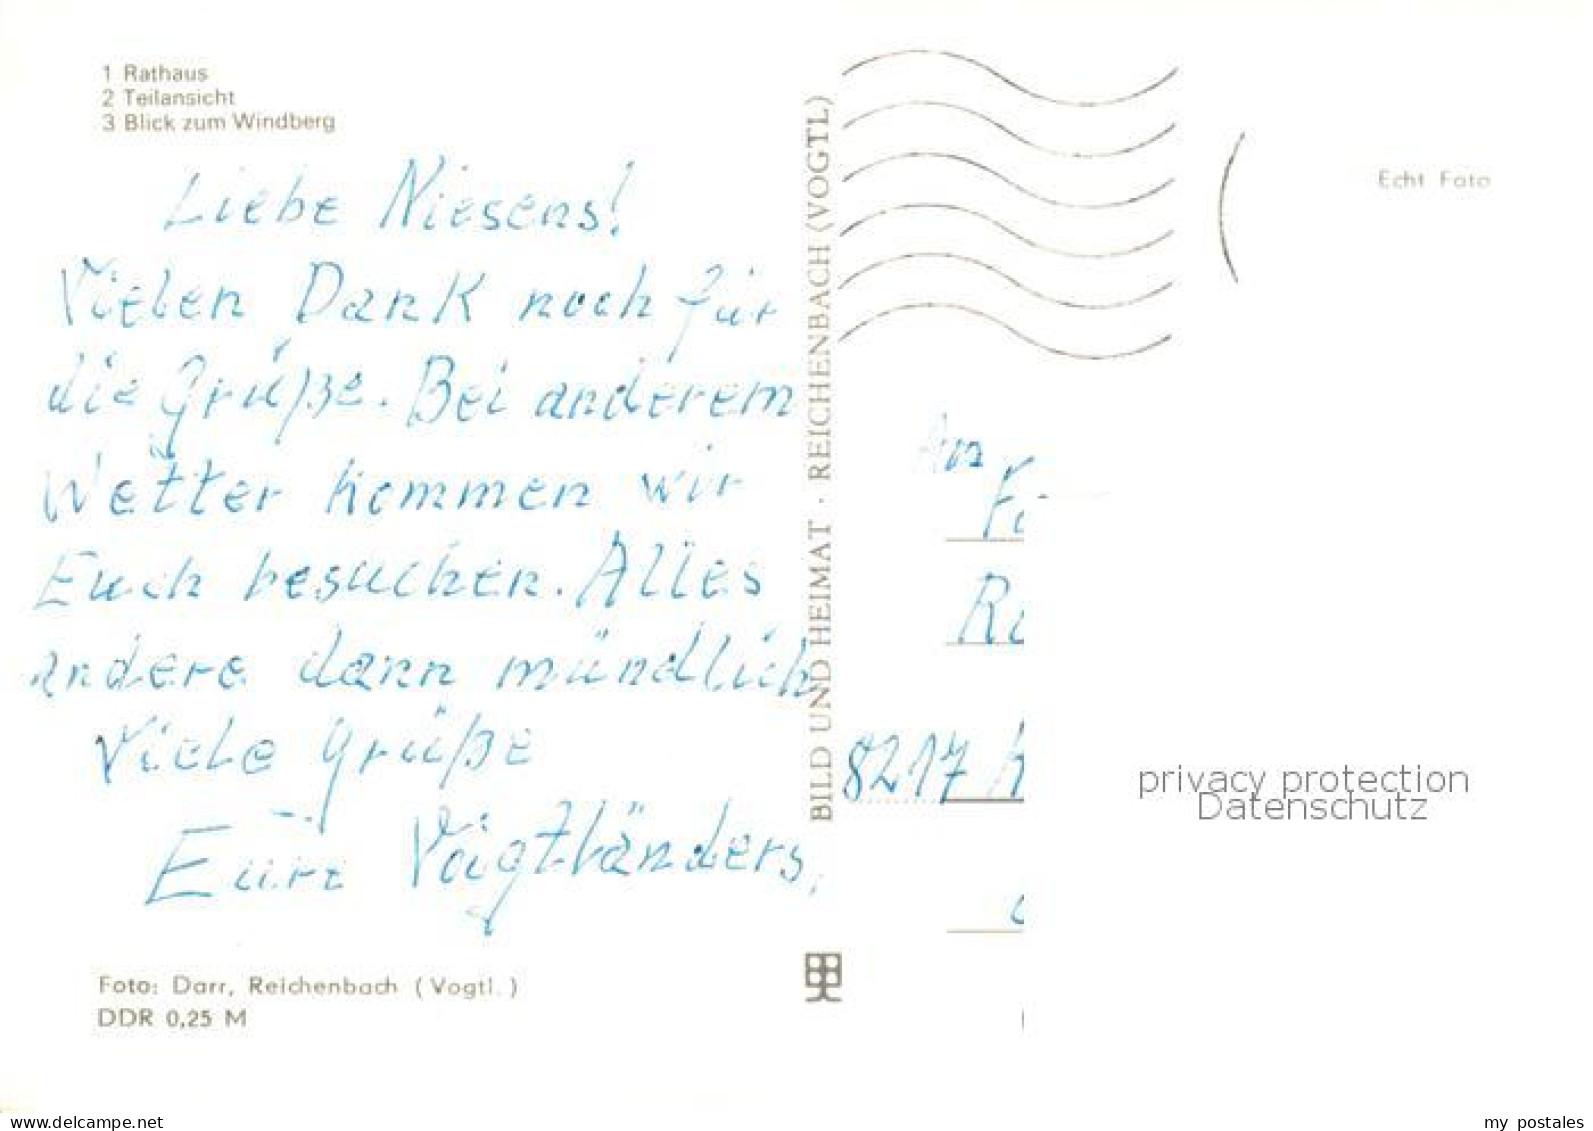 1 Rathaus
2 Teilansicht
3 Blick zum Windberg
Liebe Niesens!
Vielen Dank noch für
die Grüße. Bei anderem
Wetter kommen wir
Euch besuchen. Alles
andere dann mündlich
Viele Grüße
Eure Voigtländers,
Foto: Darr, Reichenbach (Vogtl.)
DDR 0,25 M
BILD UND HEIMAT · REICHENBACH (VOGTL)
Echt Foto
An
8217
privacy protection
Datenschutz
www.delcampe.net
my_postales